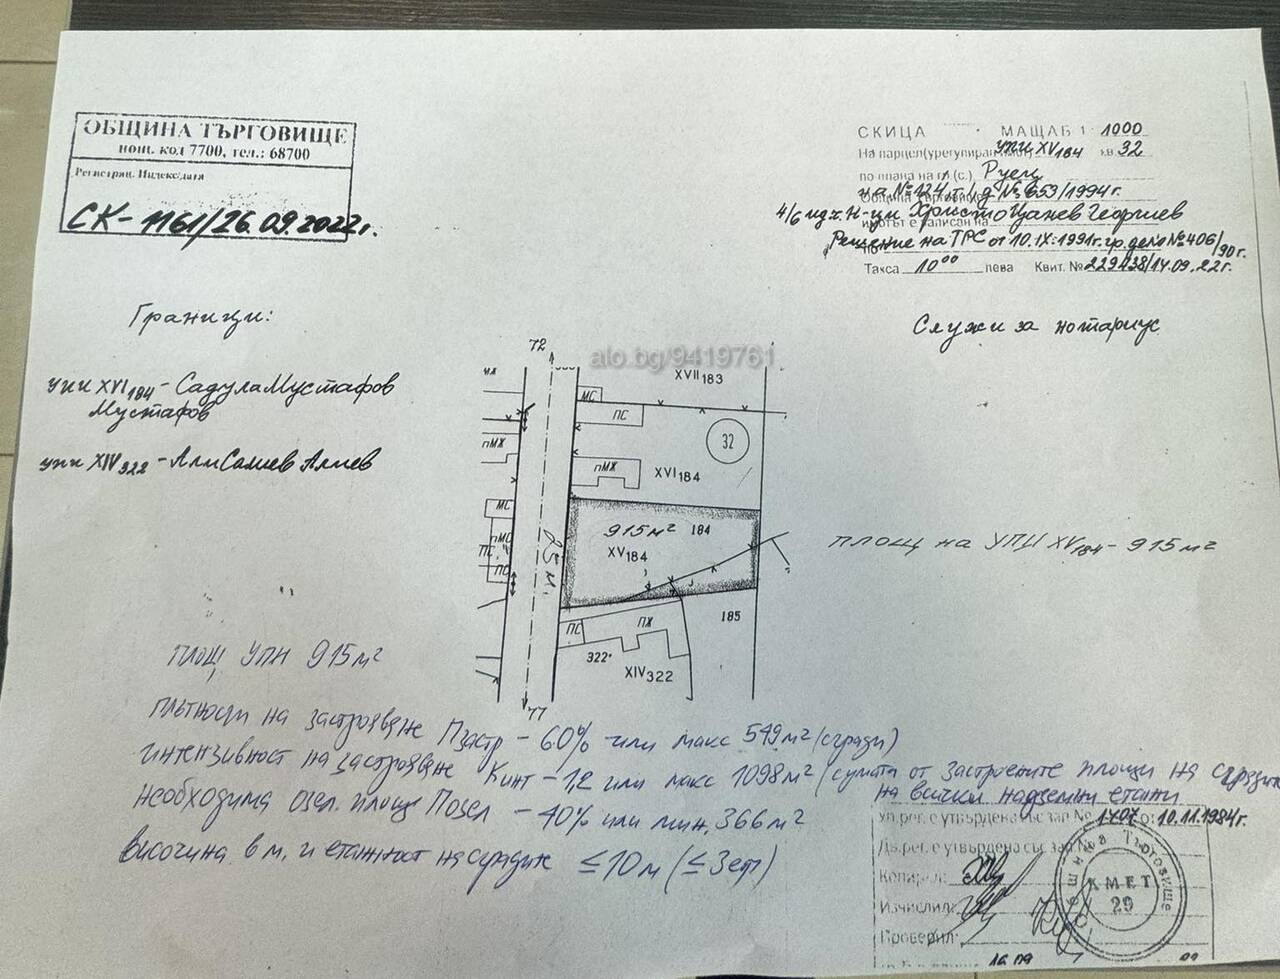 ОБЩИНА ТЪРГОВИЩЕ
пощ. код 7700, тел.: 68700
Регистрац. Индекс/дата
СК-1161/26.09.2022г.
СКИЦА МАЩАБ 1: 1000
На парцел(урегулиран) УПИ XV184 кв. 32
по плана на гр.(с.) Руец
на №124, т. I, д. №653/1994г.
4/6 ид.ч. Н-ци Христо Цанев Георгиев
Решение на ТРС от 10.IX.1991г. гр. дело №406/90г.
Такса 10⁰⁰ лева Квит. № 229438/14.09.22г.
Служи за нотариус
Граници:
упи XVI184 - Садула Мустафов
Мустафов
упи XIV322 - Али Салиев Алиев
alo.bg/9419761
72
XVII183
МС
ПС
32
пМЖ
пМЖ
XVI184
МС
915м² 184
XV184
пМС
ПС
ПС
8.5 м.
185
ПС
ПЖ
322
XIV322
77
площ на УПИ XV184 - 915м²
площ УПИ 915м²
плътност на застрояване Пзастр - 60% или макс 549м² (сгради)
интензивност на застрояване Кинт - 1,2 или макс 1098м² (сумата от застроените площи на сградите
на всички надземни етажи
необходима озел. площ Позел - 40% или мин. 366м²
височина в м. и етажност на сградите ≤10м (≤3ет)
Ул.рег. е утвърдена със зап № 1407 от 10.11.1984г.
Дв.рег. е утвърдена със зап №
Копирал:
Изчислил:
Проверил:
Община Търговище
КМЕТ
29